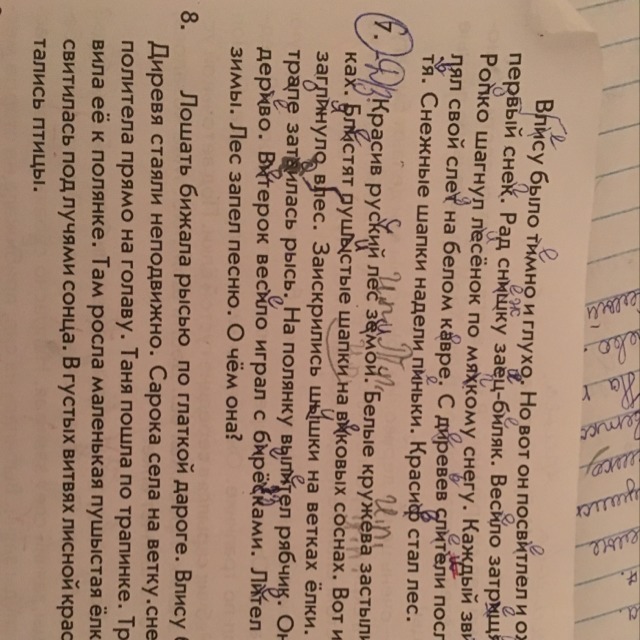 Влису было тимно и глухо. Но вот он посвитлел и ох
первый снек. Рад снишку заец-биляк. Весило затрищ
Ропко шагнул лесёнок по мяхкому снегу. Каждый зви
лял свой слет на белом кавре. С диревев слители посл
тя. Снежные шапки надели пиньки. Красиф стал лес.
7. Красив руский лес земой. Белые кружева застыли
ках. Блистят пушыстые шапки на виковых соснах. Вот и
заглинуло влес. Заискрились шышки на ветках ёлки.
трапе затаилась рысь. На полянку вылител рябчик. Он
дериво. Витерок весило играл с бирёзками. Лител
зимы. Лес запел песню. О чём она?
8. Лошать бижала рысью по глаткой дароге. Влису
Диревя стаяли неподвижно. Сарока села на ветку.сне
политела прямо на голаву. Таня пошла по трапинке. Тр
вила её к полянке. Там росла маленькая пушыстая ёлк
свитилась под лучями сонца. В густых витвях лисной крас
тались птицы.